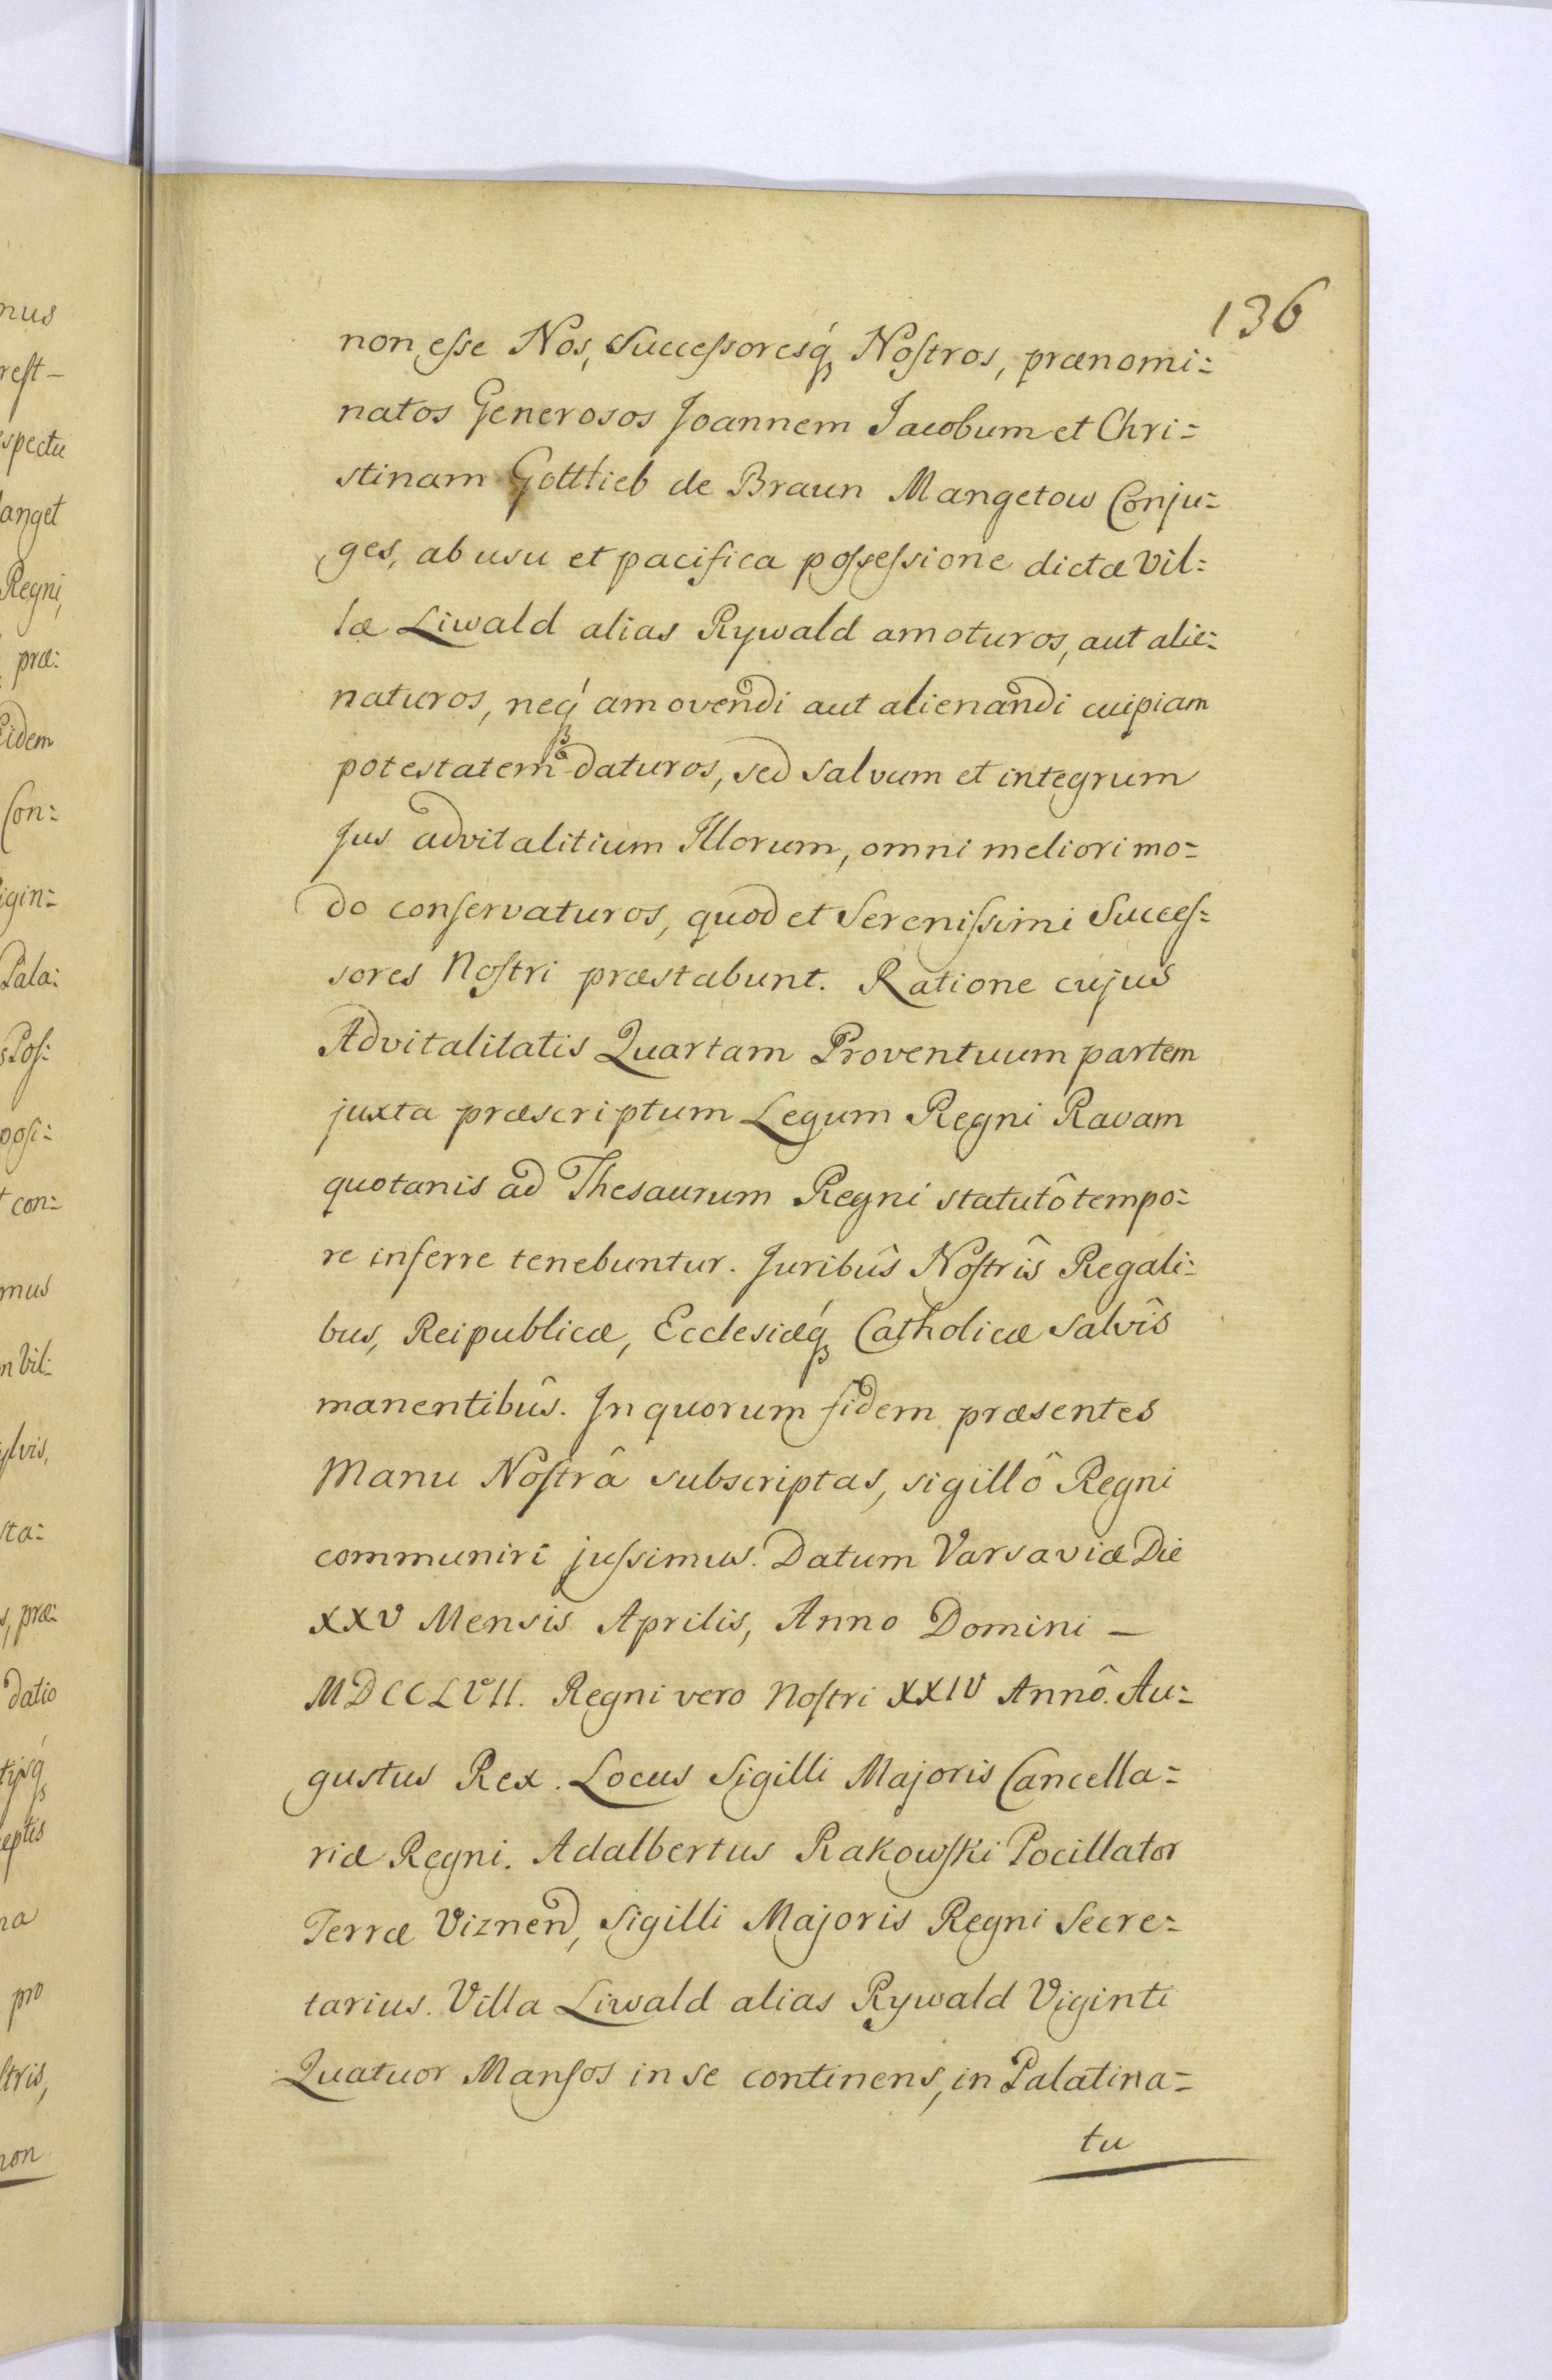 136
non esse Nos, Successoresq́ꝫ Nostros, prænomi=
natos Generosos Joannem Jacobum et Chri=
stinam Gottlieb de Braun Mangetow Conju=
ges, ab usu et pacifica possessione dictæ Vil=
læ Liwald alias Rywald amoturos, aut alie=
naturos, neq́ꝫ amovendi aut alienandi cuipiam
potestatem daturos, sed salvum et integrum
Jus advitalitium Illorum, omni meliori mo=
do conservaturos, quod et Serenissimi Succes=
sores Nostri præstabunt. Ratione cujus
Advitalitatis Quartam Proventuum partem
juxta præscriptum Legum Regni Ravam
quotanis ad Thesaurum Regni statutô tempo=
re inferre tenebuntur. Juribûs Nostrîs Regali=
bus, Reipublicæ, Ecclesiæq́ꝫ Catholicæ salvîs
manentibûs. In quorum fidem præsentes
Manu Nostrâ subscriptas, sigillô Regni
communiri jussimus. Datum Varsaviæ Die
XXV Mensis Aprilis, Anno Domini —
MDCCLVII. Regni vero Nostri XXIV Annô. Au=
gustus Rex. Locus Sigilli Majoris Cancella=
riæ Regni. Adalbertus Rakowski Pocillator
Terræ Viznen, Sigilli Majoris Regni Secre=
tarius. Villa Liwald alias Rywald Viginti
Quatuor Mansos in se continens, in Palatina=
tu
nus
rest—
espectu
langet
Regni,
præ:
Eidem
Con=
igin=
Pala:
Pos:
posi:
con=
mus
m Vil:
ylvis,
sta:
s, præ:
datio
tijsq́ꝫ
eptis
na
pro
stris,
non